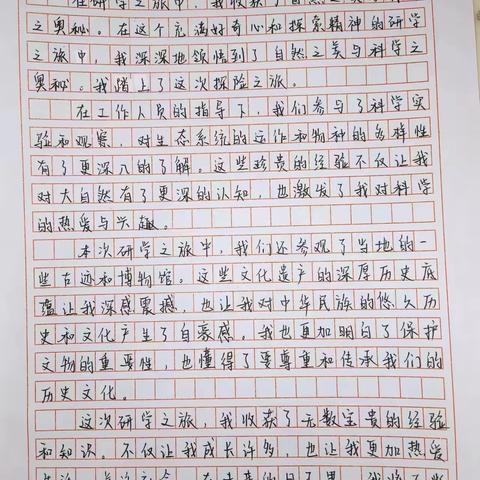 在研学之旅中，我收获了自然之美与科学
之奥秘。在这个充满好奇心和探索精神的研学
之旅中，我深深地领悟到了自然之美与科学之
奥秘。我踏上了这次探险之旅。
在工作人员的指导下，我们参与了科学实
验和观察，对生态系统的运作和物种的多样性
有了更深入的了解。这些珍贵的经验不仅让我
对大自然有了更深的认知，也激发了我对科学
的热爱与兴趣。
本次研学之旅中，我们还参观了当地的一
些古迹和博物馆。这些文化遗产的深厚历史底
蕴让我深感震撼，也让我对中华民族的悠久历
史和文化产生了自豪感。我也更加明白了保护
文物的重要性，也懂得了要尊重和传承我们的
历史文化。
这次研学之旅，我收获了无数宝贵的经验
和知识。不仅让我成长许多，也让我更加热爱